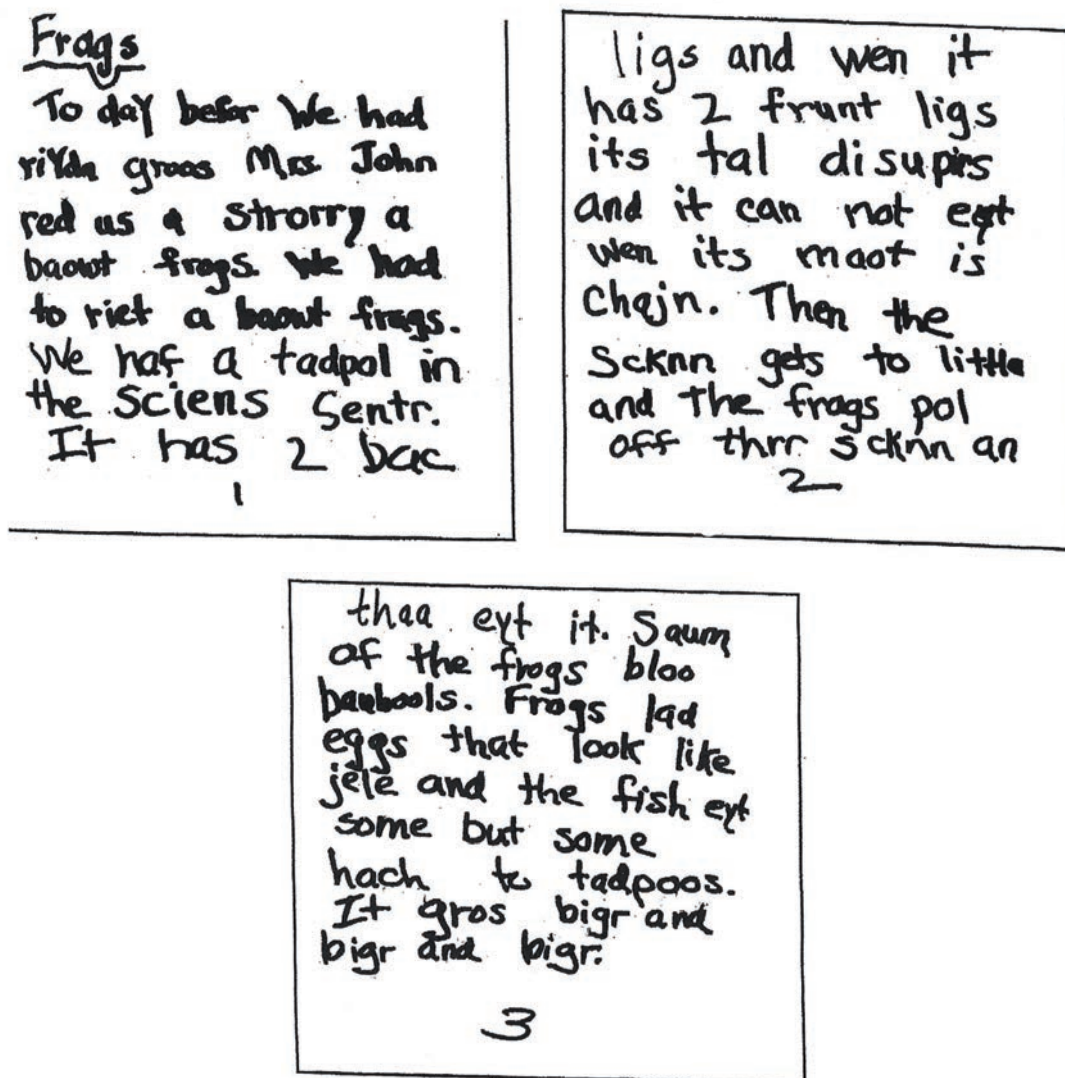 Frags
To day befor We had
riYdn groos Mrs. John
red us a strorry a
baowt frogs. We had
to riet a baowt frags.
We haf a tadpol in
the sciens sentr.
It has 2 bac
1
ligs and wen it
has 2 frunt ligs
its tal disupirs
and it can not eyt
wen its maot is
chajn. Then the
Scknn gets to little
and the frogs pol
off thrr scknn an
2
thaa eyt it. Saum
of the frogs bloo
baubools. Frogs lad
eggs that look like
jele and the fish eyt
some but some
hach to tadpoos.
It gros bigr and
bigr and bigr.
3